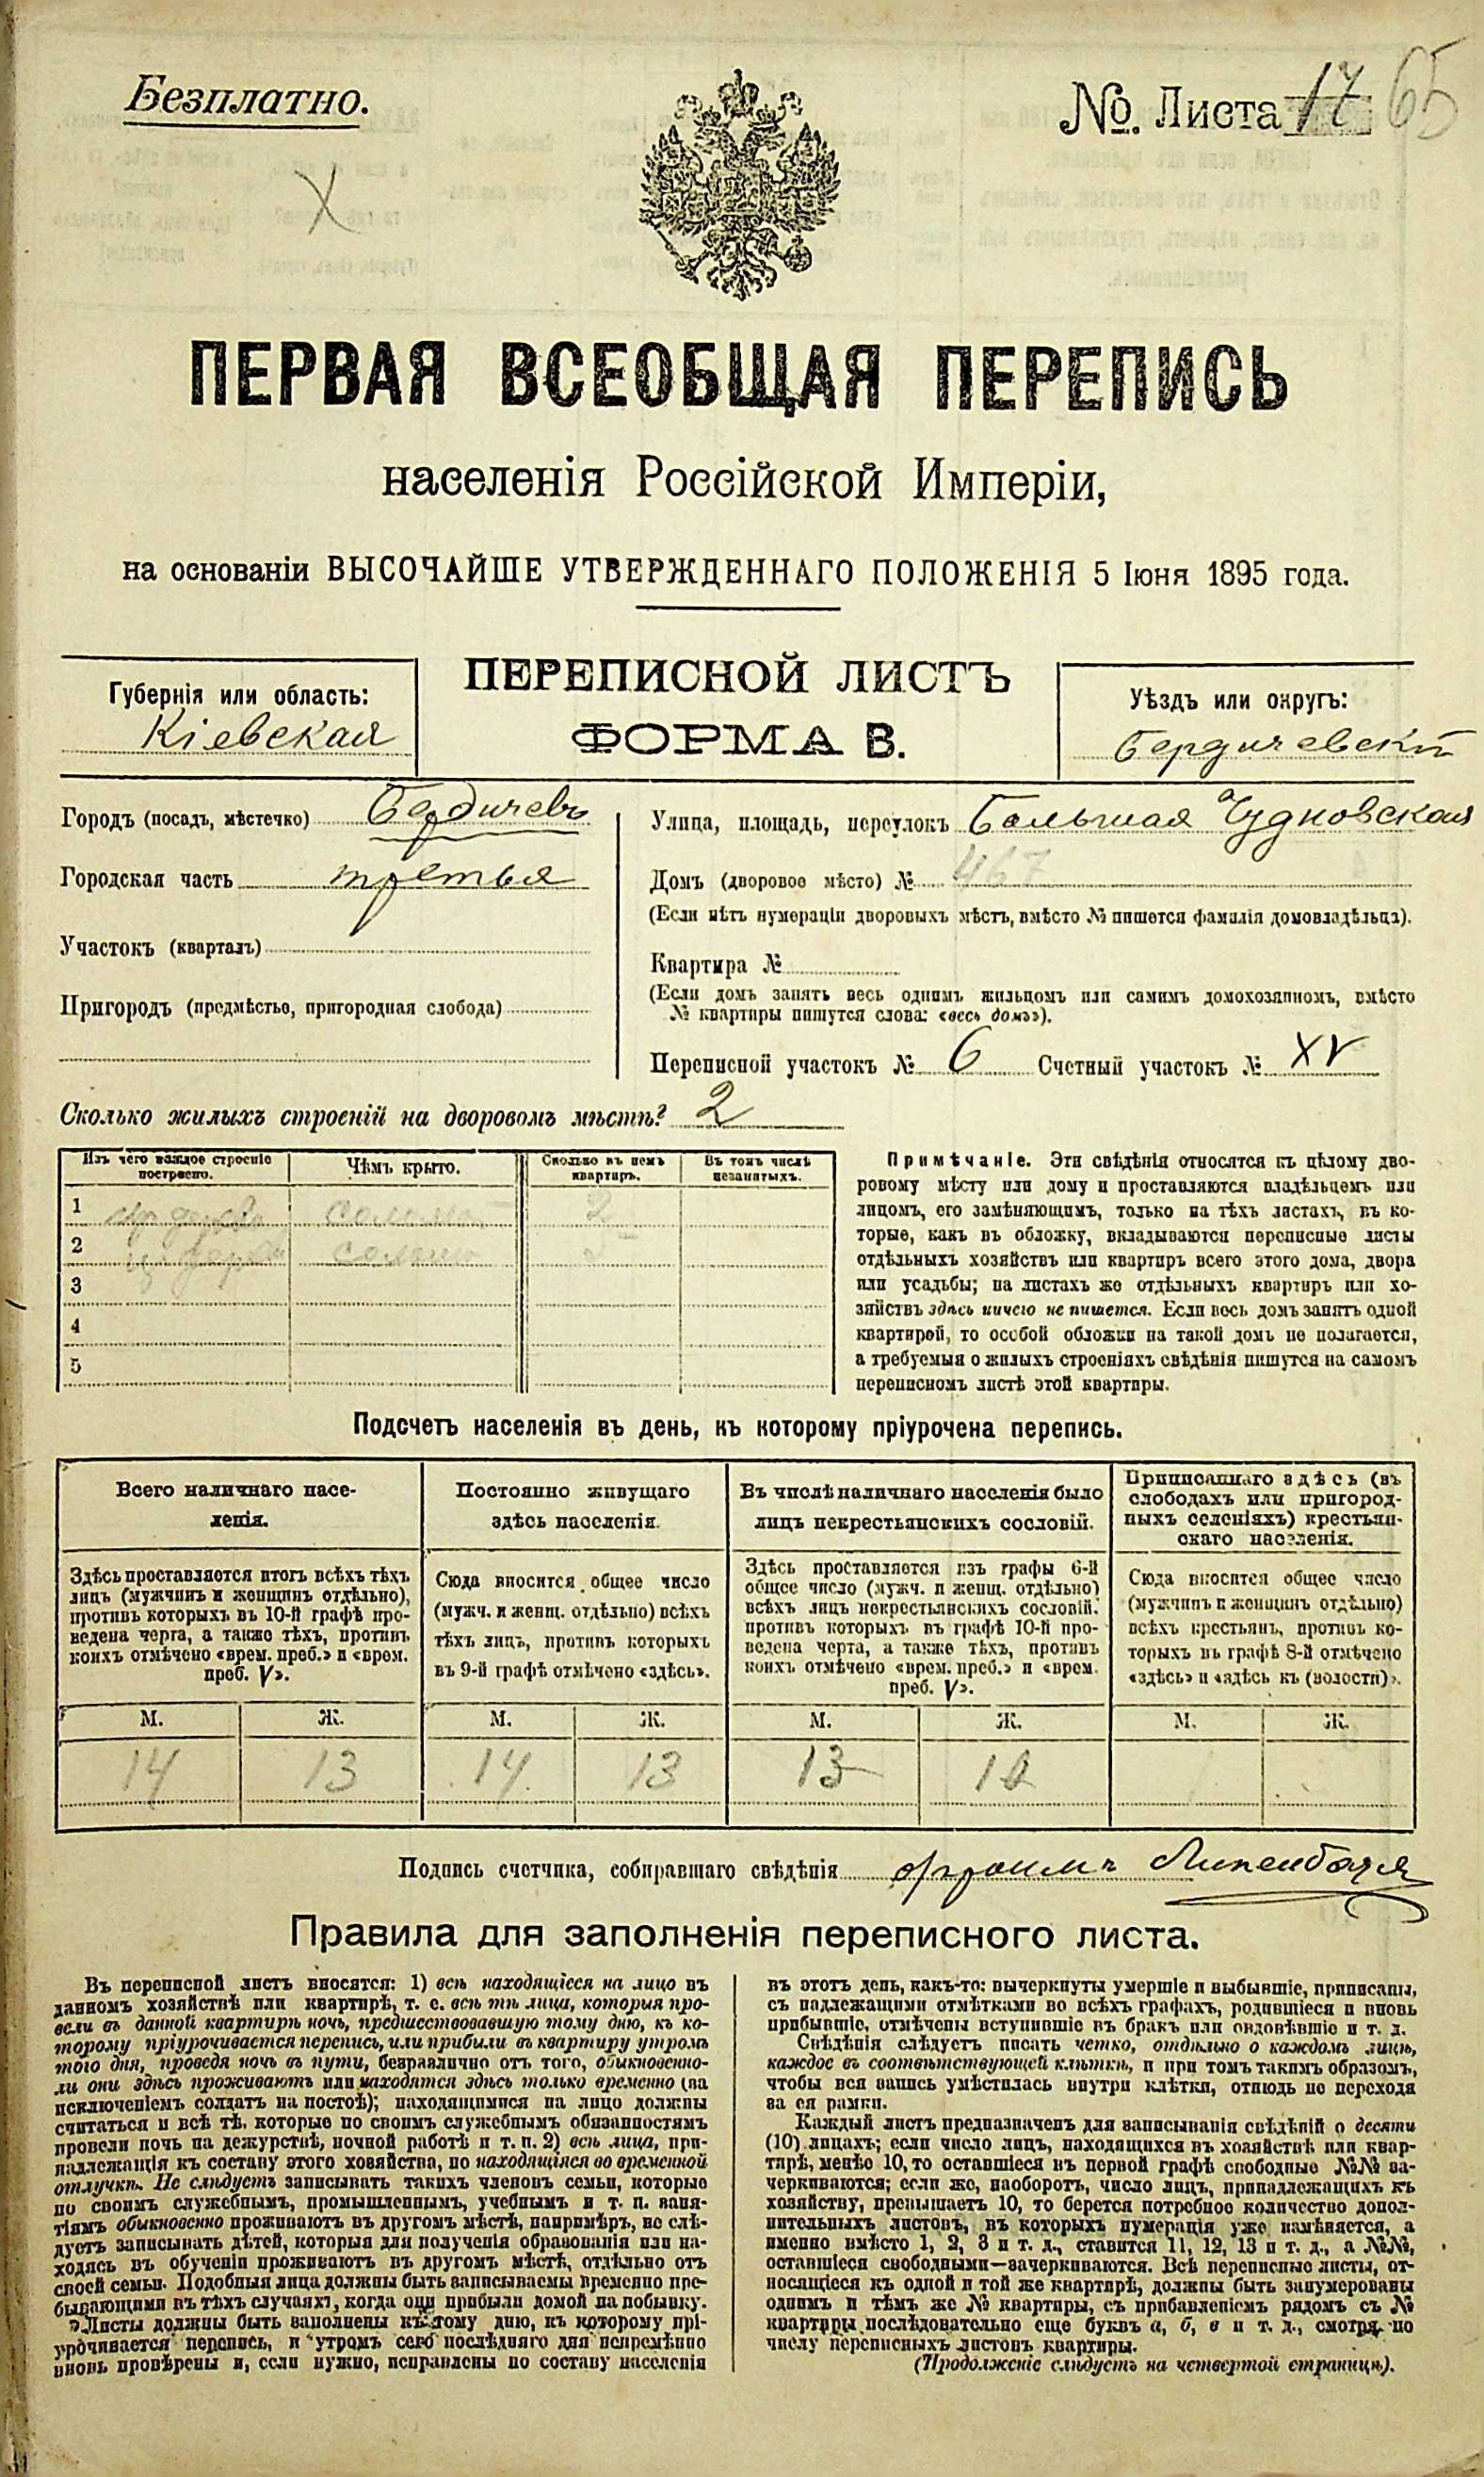 Безплатно.
№. Листа 17 65
ПЕРВАЯ ВСЕОБЩАЯ ПЕРЕПИСЬ
населенія Россійской Имперіи,
на основаніи ВЫСОЧАЙШЕ УТВЕРЖДЕННАГО ПОЛОЖЕНІЯ 5 Іюня 1895 года.
ПЕРЕПИСНОЙ ЛИСТЪ
ФОРМА В.
Губернія или область:
Кіевская
Уѣздъ или округъ:
Бердичевскій
Городъ (посадъ, мѣстечко) Бердичевъ
Городская часть третья
Участокъ (кварталъ)
Пригородъ (предмѣстье, пригородная слобода)
Улица, площадь, переулокъ Большая Чудновская
Домъ (дворовое мѣсто) № 467
(Если нѣтъ нумераціи дворовыхъ мѣстъ, вмѣсто № пишется фамилія домовладѣльца).
Квартира №
(Если домъ занятъ весь однимъ жильцомъ или самимъ домохозяиномъ, вмѣсто
№ квартиры пишутся слова: «весь домъ»).
Переписной участокъ № 6 Счетный участокъ № XV
Сколько жилыхъ строеній на дворовомъ мѣстѣ? 2
Изъ чего каждое строеніе
построено.
Чѣмъ крыто.
Сколько въ немъ
квартиръ.
Въ томъ числѣ
незанятыхъ.
1 2
2
3
4
5
Примѣчаніе. Эти свѣдѣнія относятся къ цѣлому дво-
ровому мѣсту или дому и проставляются владѣльцемъ или
лицомъ, его замѣняющимъ, только на тѣхъ листахъ, въ ко-
торые, какъ въ обложку, вкладываются переписные листы
отдѣльныхъ хозяйствъ или квартиръ всего этого дома, двора
или усадьбы; на листахъ же отдѣльныхъ квартиръ или хо-
зяйствъ здѣсь ничего не пишется. Если весь домъ занятъ одной
квартирой, то особой обложки на такой домъ не полагается,
а требуемыя о жилыхъ строеніяхъ свѣдѣнія пишутся на самомъ
переписномъ листѣ этой квартиры.
Подсчетъ населенія въ день, къ которому пріурочена перепись.
Всего наличнаго насе-
ленія.
Здѣсь проставляется итогъ всѣхъ тѣхъ
лицъ (мужчинъ и женщинъ отдѣльно),
противъ которыхъ въ 10-й графѣ про-
ведена черта, а также тѣхъ, противъ
коихъ отмѣчено «врем. преб.» и «врем.
преб. V».
Постоянно живущаго
здѣсь населенія.
Сюда вносится общее число
(мужч. и женщ. отдѣльно) всѣхъ
тѣхъ лицъ, противъ которыхъ
въ 9-й графѣ отмѣчено «здѣсь».
Въ числѣ наличнаго населенія было
лицъ некрестьянскихъ сословій.
Здѣсь проставляется изъ графы 6-й
общее число (мужч. и женщ. отдѣльно)
всѣхъ лицъ некрестьянскихъ сословій,
противъ которыхъ въ графѣ 10-й про-
ведена черта, а также тѣхъ, противъ
коихъ отмѣчено «врем. преб.» и «врем.
преб. V».
Приписаннаго здѣсь (въ
слободахъ или пригород-
ныхъ селеніяхъ) крестьян-
скаго населенія.
Сюда вносится общее число
(мужчинъ и женщинъ отдѣльно)
всѣхъ крестьянъ, противъ ко-
торыхъ въ графѣ 8-й отмѣчено
«здѣсь» и «здѣсь къ (волости)».
М. Ж. М. Ж. М. Ж. М. Ж.
14 13 14 13 13
Подпись счетчика, собиравшаго свѣдѣнія
Правила для заполненія переписного листа.
Въ переписной листъ вносятся: 1) всѣ находящіеся на лицо въ
данномъ хозяйствѣ или квартирѣ, т. е. всѣ тѣ лица, которыя про-
вели въ данной квартирѣ ночь, предшествовавшую тому дню, къ ко-
торому пріурочивается перепись, или прибыли въ квартиру утромъ
того дня, проведя ночь въ пути, безразлично отъ того, обыкновенно-
ли они здѣсь проживаютъ или находятся здѣсь только временно (за
исключеніемъ солдатъ на постоѣ); находящимися на лицо должны
считаться и всѣ тѣ, которые по своимъ служебнымъ обязанностямъ
провели ночь на дежурствѣ, ночной работѣ и т. п. 2) всѣ лица, при-
надлежащія къ составу этого хозяйства, но находящіяся во временной
отлучкѣ. Не слѣдуетъ записывать такихъ членовъ семьи, которые
по своимъ служебнымъ, промышленнымъ, учебнымъ и т. п. заня-
тіямъ обыкновенно проживаютъ въ другомъ мѣстѣ, напримѣръ, не слѣ-
дуетъ записывать дѣтей, которыя для полученія образованія или на-
ходясь въ обученіи проживаютъ въ другомъ мѣстѣ, отдѣльно отъ
своей семьи. Подобныя лица должны быть записываемы временно пре-
бывающими въ тѣхъ случаяхъ, когда они прибыли домой на побывку.
Листы должны быть заполнены къ тому дню, къ которому прі-
урочивается перепись, и утромъ сего послѣдняго дня непремѣнно
вновь провѣрены и, если нужно, исправлены по составу населенія
въ этотъ день, какъ-то: вычеркнуты умершіе и выбывшіе, приписаны,
съ надлежащими отмѣтками во всѣхъ графахъ, родившіеся и вновь
прибывшіе, отмѣчены вступившіе въ бракъ или овдовѣвшіе и т. д.
Свѣдѣнія слѣдуетъ писать четко, отдѣльно о каждомъ лицѣ,
каждое въ соотвѣтствующей клѣткѣ, и при томъ такимъ образомъ,
чтобы вся запись умѣстилась внутри клѣтки, отнюдь не переходя
за ея рамки.
Каждый листъ предназначенъ для записыванія свѣдѣній о десяти
(10) лицахъ; если число лицъ, находящихся въ хозяйствѣ или квар-
тирѣ, менѣе 10, то оставшіеся въ первой графѣ свободные №№ за-
черкиваются; если же, наоборотъ, число лицъ, принадлежащихъ къ
хозяйству, превышаетъ 10, то берется потребное количество допол-
нительныхъ листовъ, въ которыхъ нумерація уже измѣняется, а
именно вмѣсто 1, 2, 3 и т. д., ставится 11, 12, 13 и т. д., а №№,
оставшіеся свободными—зачеркиваются. Всѣ переписные листы, от-
носящіеся къ одной и той же квартирѣ, должны быть занумерованы
однимъ и тѣмъ же № квартиры, съ прибавленіемъ рядомъ съ №
квартиры послѣдовательно еще буквъ а, б, в и т. д., смотря по
числу переписныхъ листовъ квартиры.
(Продолженіе слѣдуетъ на четвертой страницѣ).